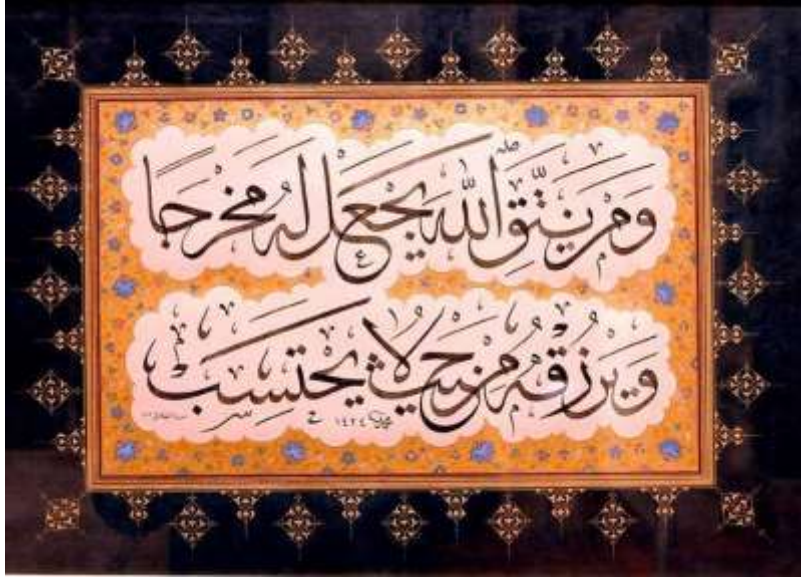 وَمَنْ يَتَّقِ اللهَ يَجْعَلْ لَهُ مَخْرَجًا
وَيَرْزُقْهُ مِنْ حَيْثُ لَا يَحْتَسِبُ
١٤٢٤